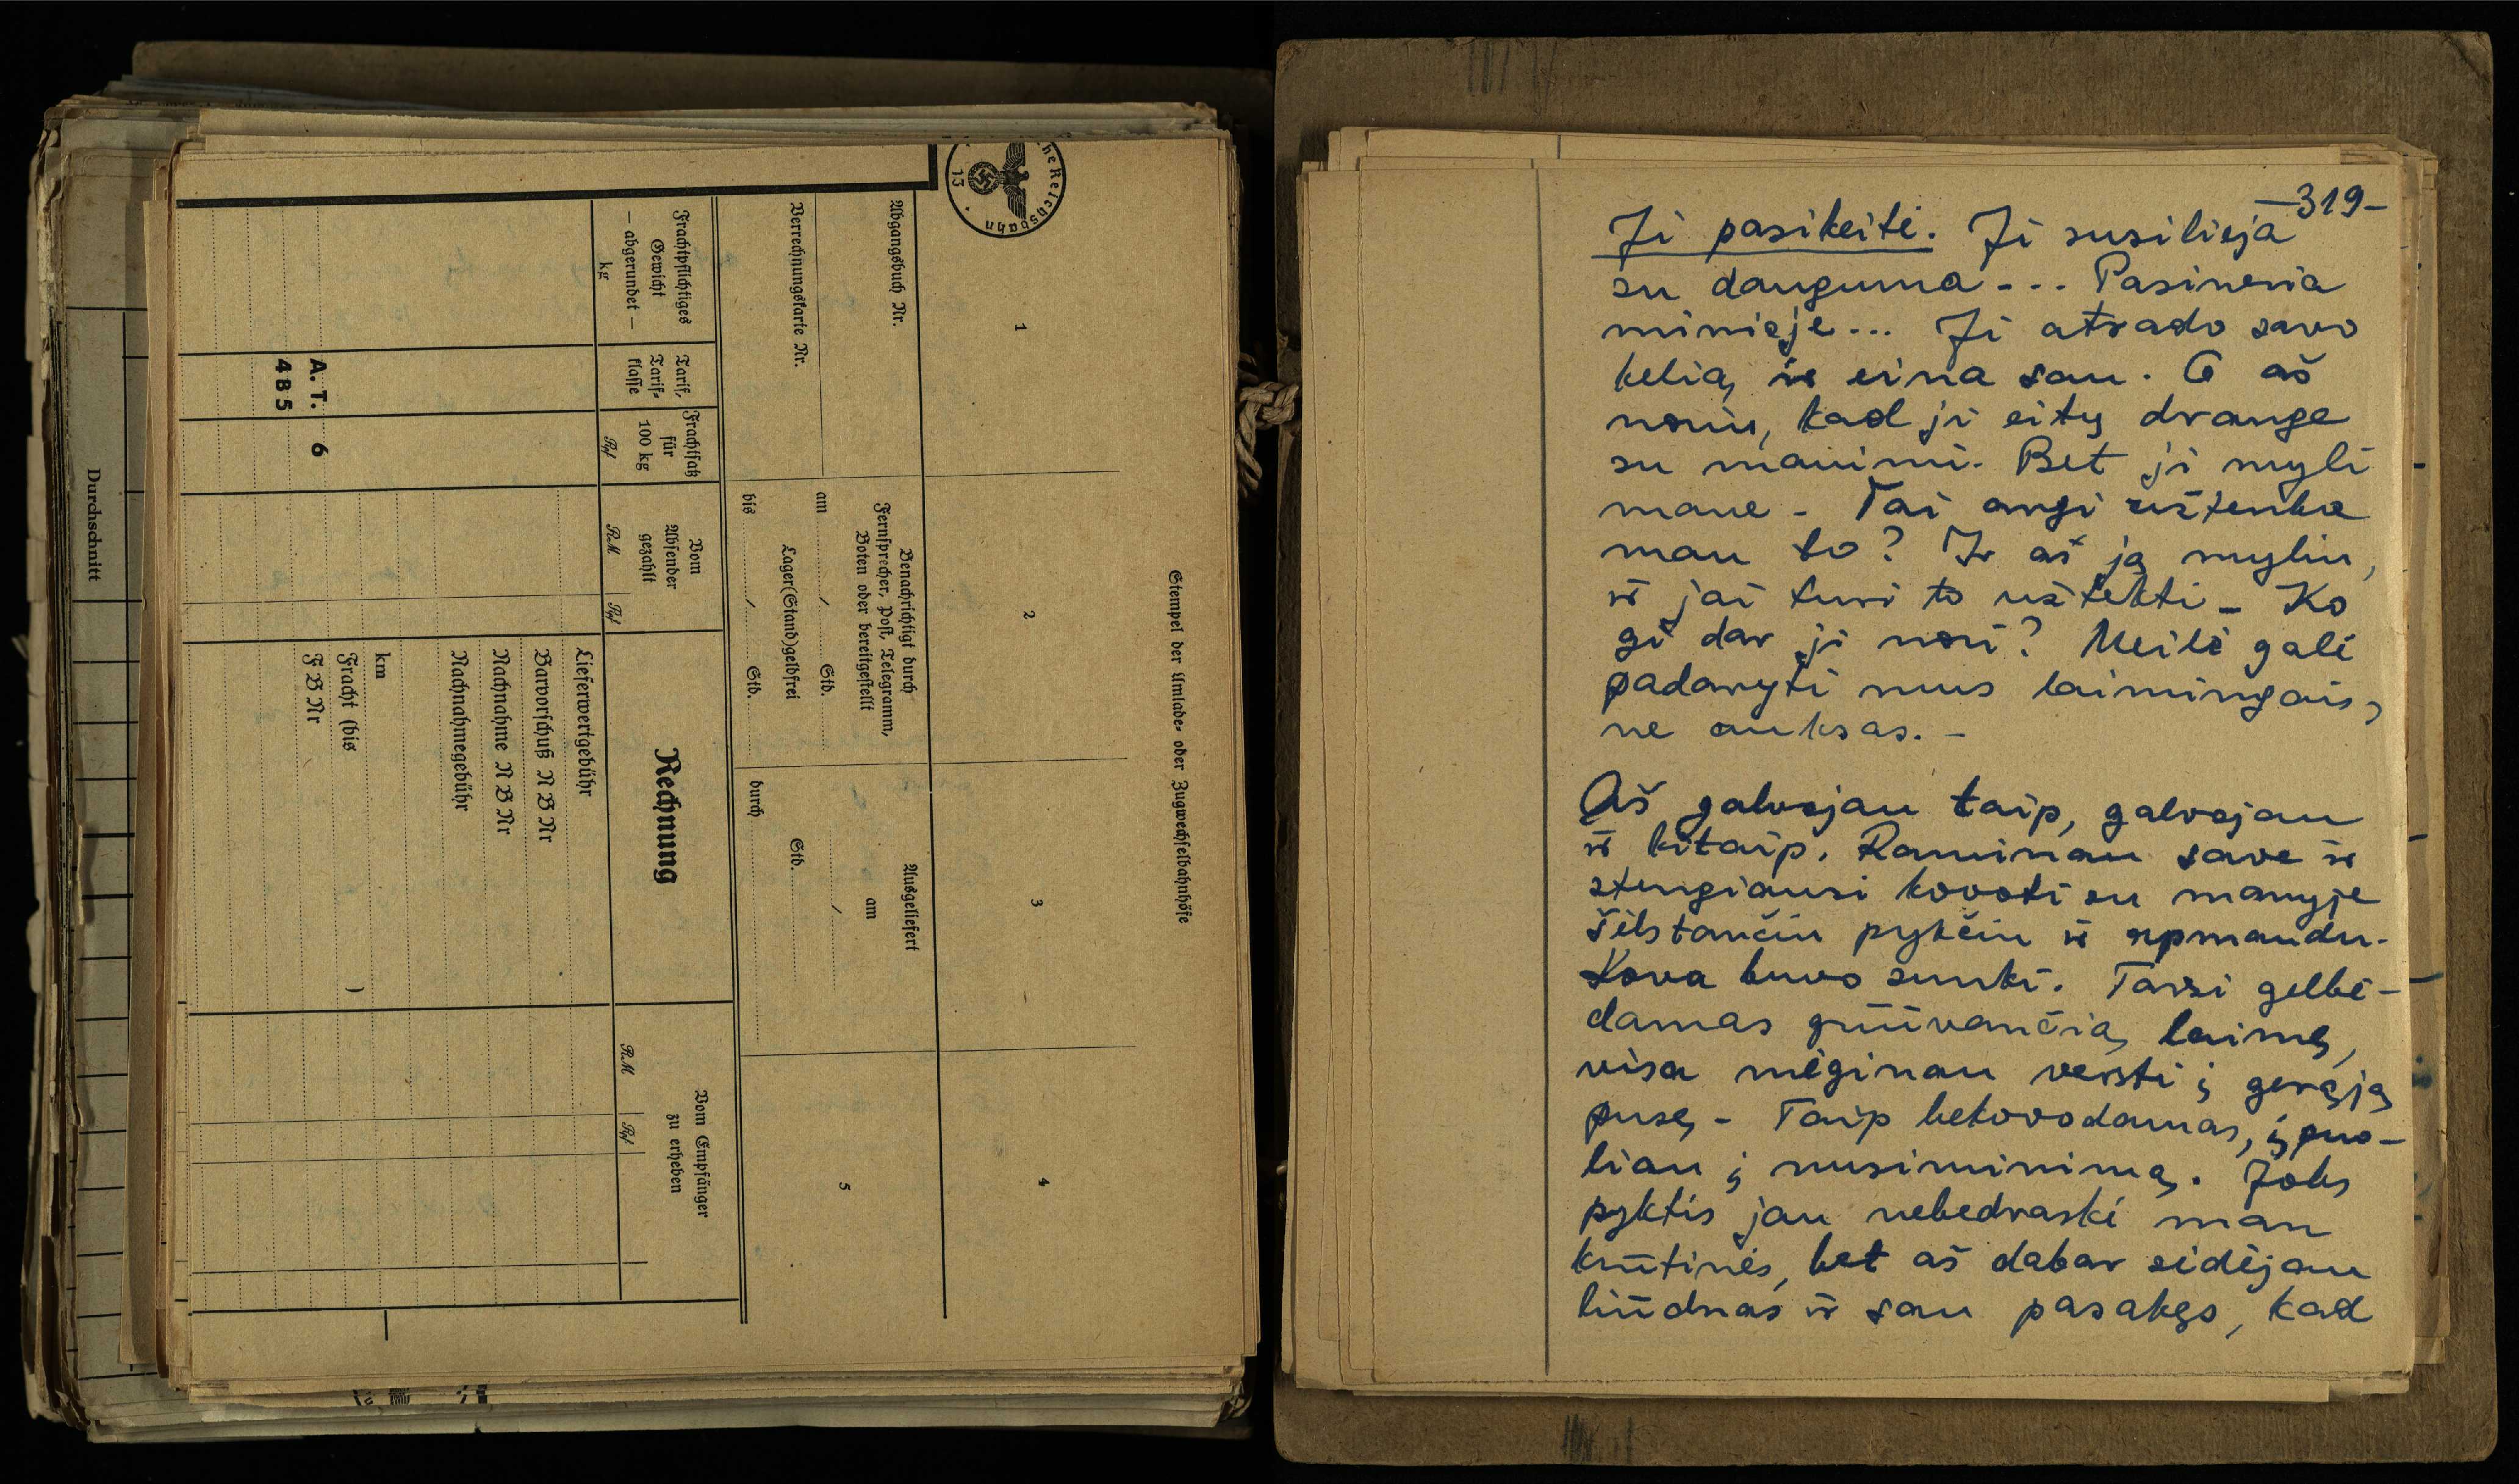 Durchschnitt
Stempel der Umlade- oder Zugwechselbahnhöfe
1
2
3
4
5
he Reichsbahn
13
Abgangsbuch Nr.
Verrechnungskarte Nr.
Benachrichtigt durch
Fernsprecher, Post, Telegramm,
Boten oder bereitgestellt
am / Std.
Lager(Stand)geldfrei
bis / Std.
Ausgeliefert
am
/
Std.
durch
Frachtpflichtiges
Gewicht
— abgerundet —
kg
Tarif,
Tarif-
klasse
Frachtsatz
für
100 kg
Rpf
Vom
Absender
gezahlt
RM Rpf
Rechnung
Vom Empfänger
zu erheben
RM Rpf
Lieferwertgebühr
Barvorschuß N B Nr
Nachnahme N B Nr
Nachnahmegebühr
km
Fracht (bis )
F B Nr
A. T. 6
4 8 5
—319—
Ji pasikeitė. Ji susilieja
su dauguma - - . Pasineria
minioje... Ji atrado savo
kelią ir eina sau. O aš
noriu, kad ji eitų drauge
su manimi. Bet ji myli
mane - Tai argi užtenka
man to? Ir aš ją myliu,
ir jai turi to užtekti - Ko
gi dar ji nori? Meilė gali
padaryti mus laimingais,
ne auksas. -
Aš galvojau taip, galvojau
ir kitaip. Raminau save ir
stengiausi kovoti su manyje
šilstančiu pykčiu ir apmaudu.
Kova buvo sunki. Tarsi gelbė-
damas griūvančią laimę,
visa mėginau versti į gerąją
pusę - Taip bekovodamas, įpuo-
liau į nusiminimą. Joks
pyktis jau nebedraskė man
krūtinės, bet aš dabar sėdėjau
liūdnas ir sau pasakęs, kad